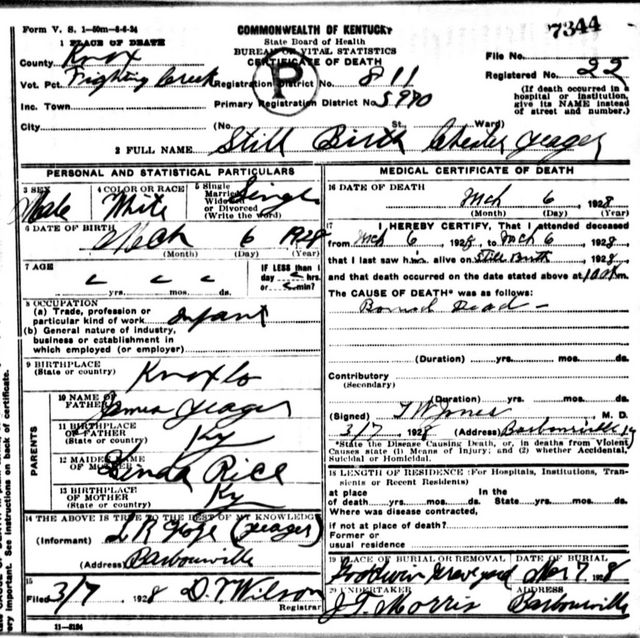 Form V. S. 1-50m-8-6-24
COMMONWEALTH OF KENTUCKY
7344
State Board of Health
BUREAU OF VITAL STATISTICS
CERTIFICATE OF DEATH
1 PLACE OF DEATH
County Knox
File No.
Vot. Pct. Fighting Creek Registration District No. 811
Registered No. 22
P
Inc. Town
Primary Registration District No. 5990
(If death occurred in a hospital or institution, give its NAME instead of street and number.)
City (No. St. Ward)
2 FULL NAME Still Birth Chester Yeager
PERSONAL AND STATISTICAL PARTICULARS
3 SEX Male
4 COLOR OR RACE White
5 Single Married Widowed or Divorced (Write the word) Single
6 DATE OF BIRTH Mch 6 1928
(Month) (Day) (Year)
7 AGE
yrs. mos. ds.
IF LESS than 1 day hrs. or min?
8 OCCUPATION
(a) Trade, profession or particular kind of work Infant
(b) General nature of industry, business or establishment in which employed (or employer)
9 BIRTHPLACE (State or country) Knox Co
PARENTS
10 NAME OF FATHER James Yeager
11 BIRTHPLACE OF FATHER (State or country) Ky
12 MAIDEN NAME OF MOTHER Rice
13 BIRTHPLACE OF MOTHER (State or country) Ky
14 THE ABOVE IS TRUE TO THE BEST OF MY KNOWLEDGE
(Informant) (Yeager)
(Address) Barbourville
15
Filed 3/7 1928 D. T. Wilson
Registrar
11-3184
MEDICAL CERTIFICATE OF DEATH
16 DATE OF DEATH Mch 6 1928
(Month) (Day) (Year)
17 I HEREBY CERTIFY, That I attended deceased
from Mch 6, 1928, to Mch 6, 1928,
that I last saw him alive on Still Birth, 1928,
and that death occurred on the date stated above at m.
The CAUSE OF DEATH* was as follows:
Born Dead
(Duration) yrs. mos. ds.
Contributory
(Secondary)
(Duration) yrs. mos. ds.
(Signed) T W Jones M. D.
3/7 1928 (Address) Barbourville Ky
*State the Disease Causing Death, or, in deaths from Violent Causes state (1) Means of Injury; and (2) whether Accidental, Suicidal or Homicidal.
18 LENGTH OF RESIDENCE (For Hospitals, Institutions, Transients or Recent Residents)
at place of death yrs. mos. ds. In the State yrs. mos. ds.
Where was disease contracted,
if not at place of death?
Former or usual residence
19 PLACE OF BURIAL OR REMOVAL Goodwin Graveyard
DATE OF BURIAL Mar 7 1928
20 UNDERTAKER J. T. Morris
ADDRESS Barbourville